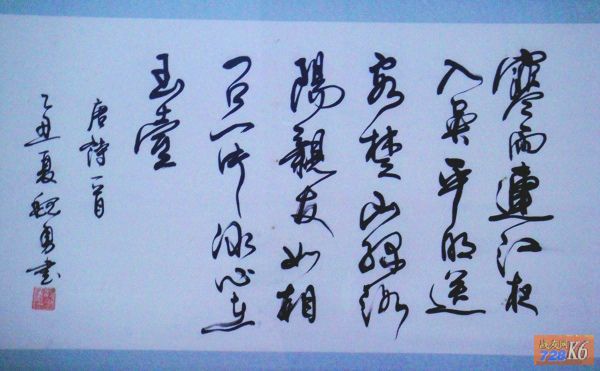 寒雨連江夜
入吳平明送
客楚山孤洛
陽親友如相
问一片冰心在
玉壺
唐詩一首
乙丑夏魏勇书
战友网
728K6